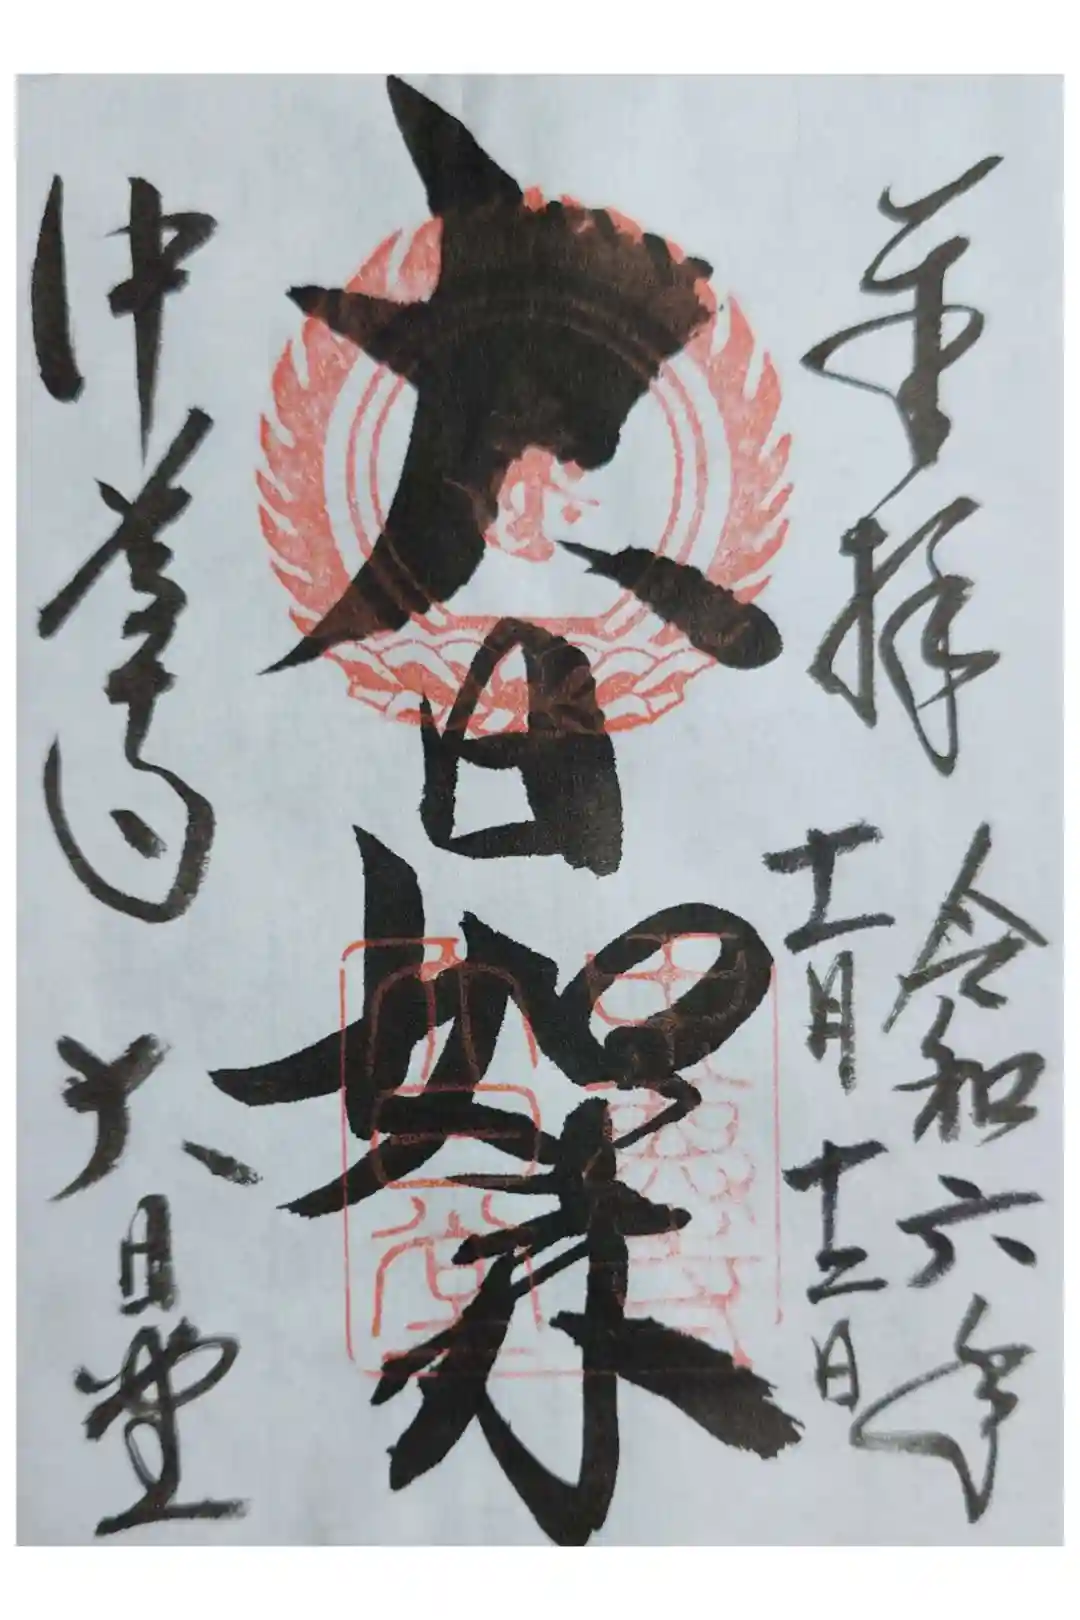 奉拝
令和六年
十一月
十二日
大日如来
中尊寺
大日堂